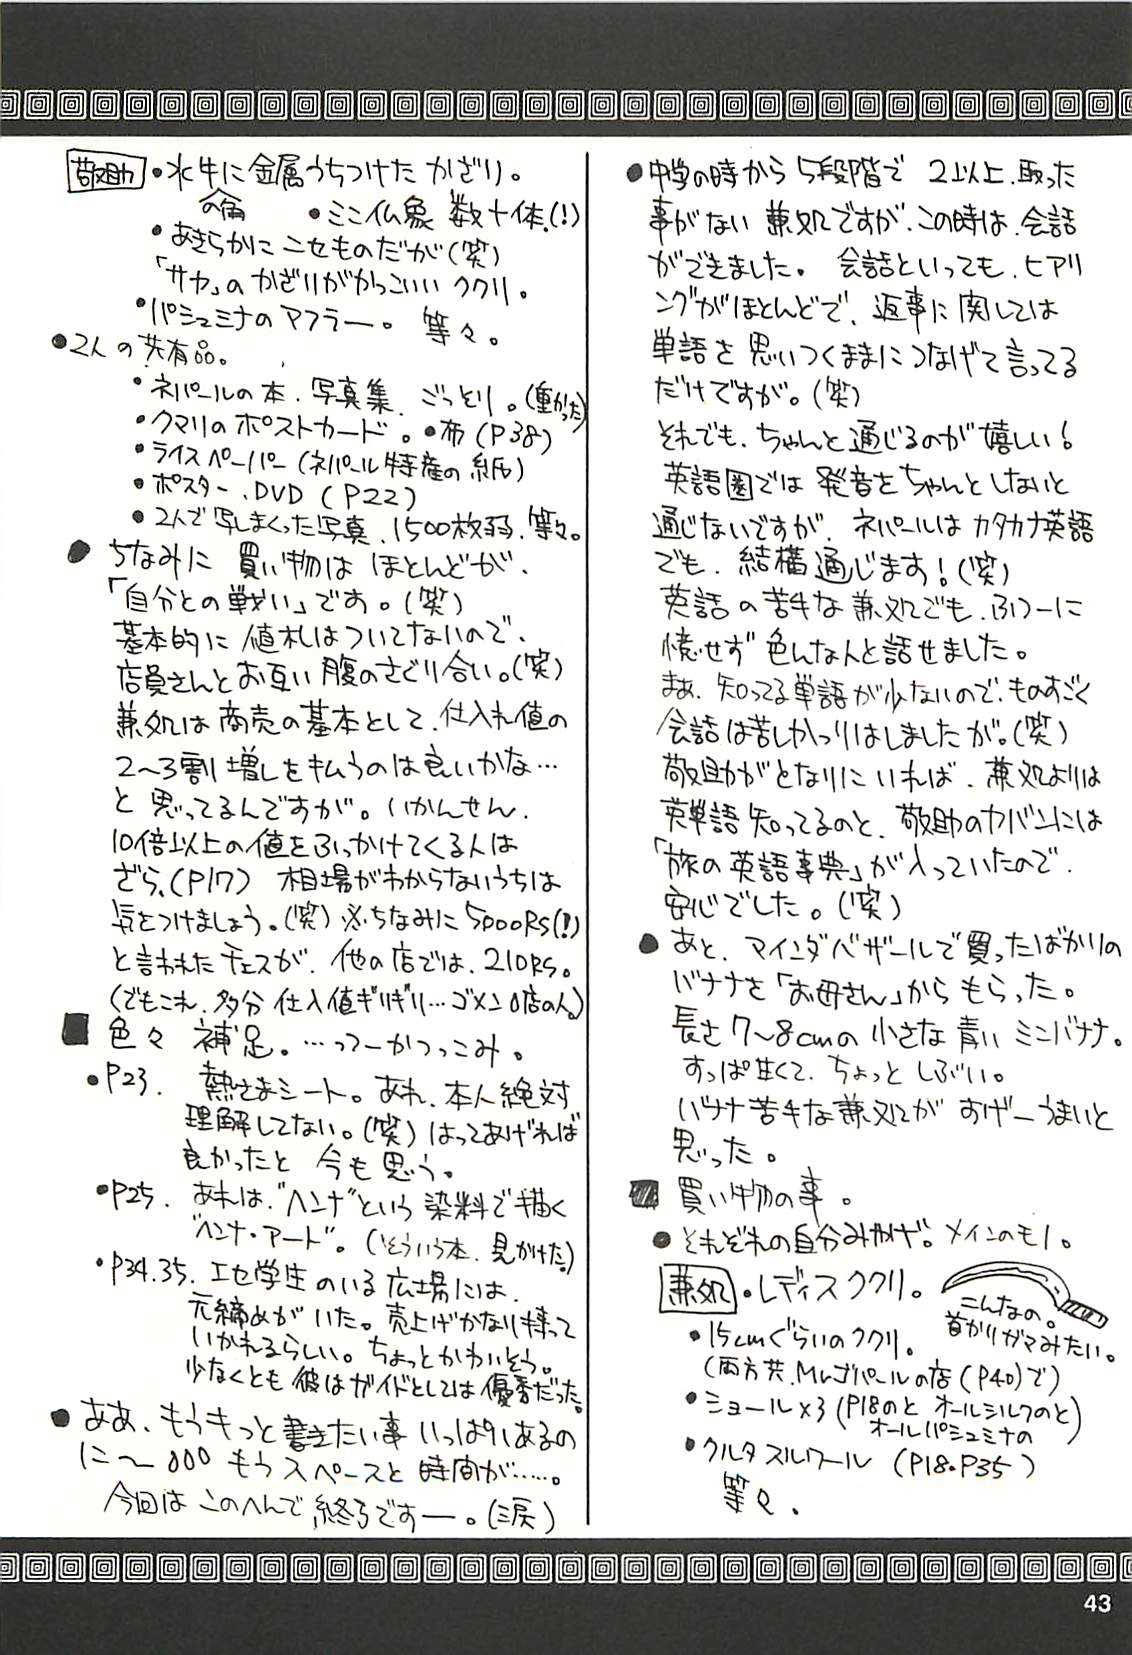 ●中学の時から5段階で 2以上、取った
事がない 兼処ですが、この時は、会話
ができました。 会話といっても、ヒアリ
ングがほとんどで、返事に関しては
単語を思いつくままにつなげて言ってる
だけですが。(笑)
それでも、ちゃんと通じるのが嬉しい!
英語圏では発音をちゃんとしないと
通じないですが、ネパールはカタカナ英語
でも、結構通じます!(笑)
英語の苦手な兼処でも、ふつーに
憶せず色んな人と話せました。
まぁ、知ってる単語が少ないので、ものすごく
会話は苦しかったりはしましたが。(笑)
敬助がとなりにいれば、兼処よりは
英単語知ってるのと、敬助のカバンには
「旅の英語事典」が入っていたので、
安心でした。(笑)
●あと、マインダベザールで買ったばかりの
バナナを「お母さん」からもらった。
長さ7〜8cmの小さな青いミニバナナ。
すっぱ甘くて、ちょっとしぶい。
バナナ苦手な兼処が おげーうまいと
思った。
■買い物の事。
●それぞれの自分みやげ。メインのモノ。
兼処・レディスククリ。
こんなの。
首かりガマみたい。
・15cmぐらいのククリ。
(両方共、Mr.ゴパールの店(P40)で)
・ショール×3(P18のと オールシルクのと)
オールパシュミナの
・クルタスルワール (P18・P35)
等々。
敬助・水牛に金属うちつけた かざり。
の角 ・ミニ仏象 数十体。(!)
・あきらかにニセものだが(笑)
「サヤ」のかざりがかっこいいククリ。
・パシュミナのマフラー。 等々。
●2人の共有品。
・ネパールの本、写真集、ごっとり。(重かった)
・クマリのポストカード。・布(P38)
・ライスペーパー(ネパール特産の紙)
・ポスター、DVD (P22)
・2人で写しまくった写真、1500枚弱、等々。
●ちなみに 買い物は ほとんどが、
「自分との戦い」です。(笑)
基本的に値札はついてないので、
店員さんとお互い腹のさぐり合い。(笑)
兼処は商売の基本として、仕入れ値の
2〜3割増しを払うのは良いかな…
と思ってるんですが。いかんせん、
10倍以上の値をふっかけてくる人は
ざら、(P17) 相場がわからないうちは
気をつけましょう。(笑)※ちなみに5000RS(!)
と言われたチェスが、他の店では、210RS。
(でもこれ、多分 仕入値ギリギリ…ゴメンの店の人。)
■色々 補足。…ってーかつっこみ。
・P23. 熱さまシート。あれ、本人絶対
理解してない。(笑)はってあげれば
良かったと 今も思う。
・P25. あれは、"ヘンナ"という染料で描く
"ヘンナ・アート"。(そういう本、見かけた。)
・P34.35. エセ学生のいる広場には、
元締めがいた。売上げかなり持って
いかれるらしい。ちょっとかわいそう。
少なくとも彼はガイドとしては優秀だった。
●ああ、もうもっと書きたい事いっぱいあるの
に〜 もうスペースと時間が……。
今回は このへんで 終るですー。(涙)
43